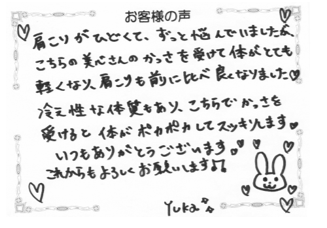 お客様の声
肩こりがひどくて、ずっと悩んでいましたが、
こちらの美心さんのかっさを受けて体がとても
軽くなり、肩こりも前に比べ良くなりました♡
冷え性な体質もあり、こちらでかっさを
受けると体がポカポカしてスッキリします♡
いつもありがとうございます。
これからもよろしくお願いします♪
Yuka